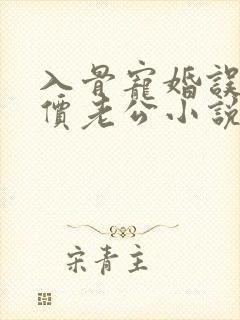 入骨寵婚誤
價老公小說
宋青主